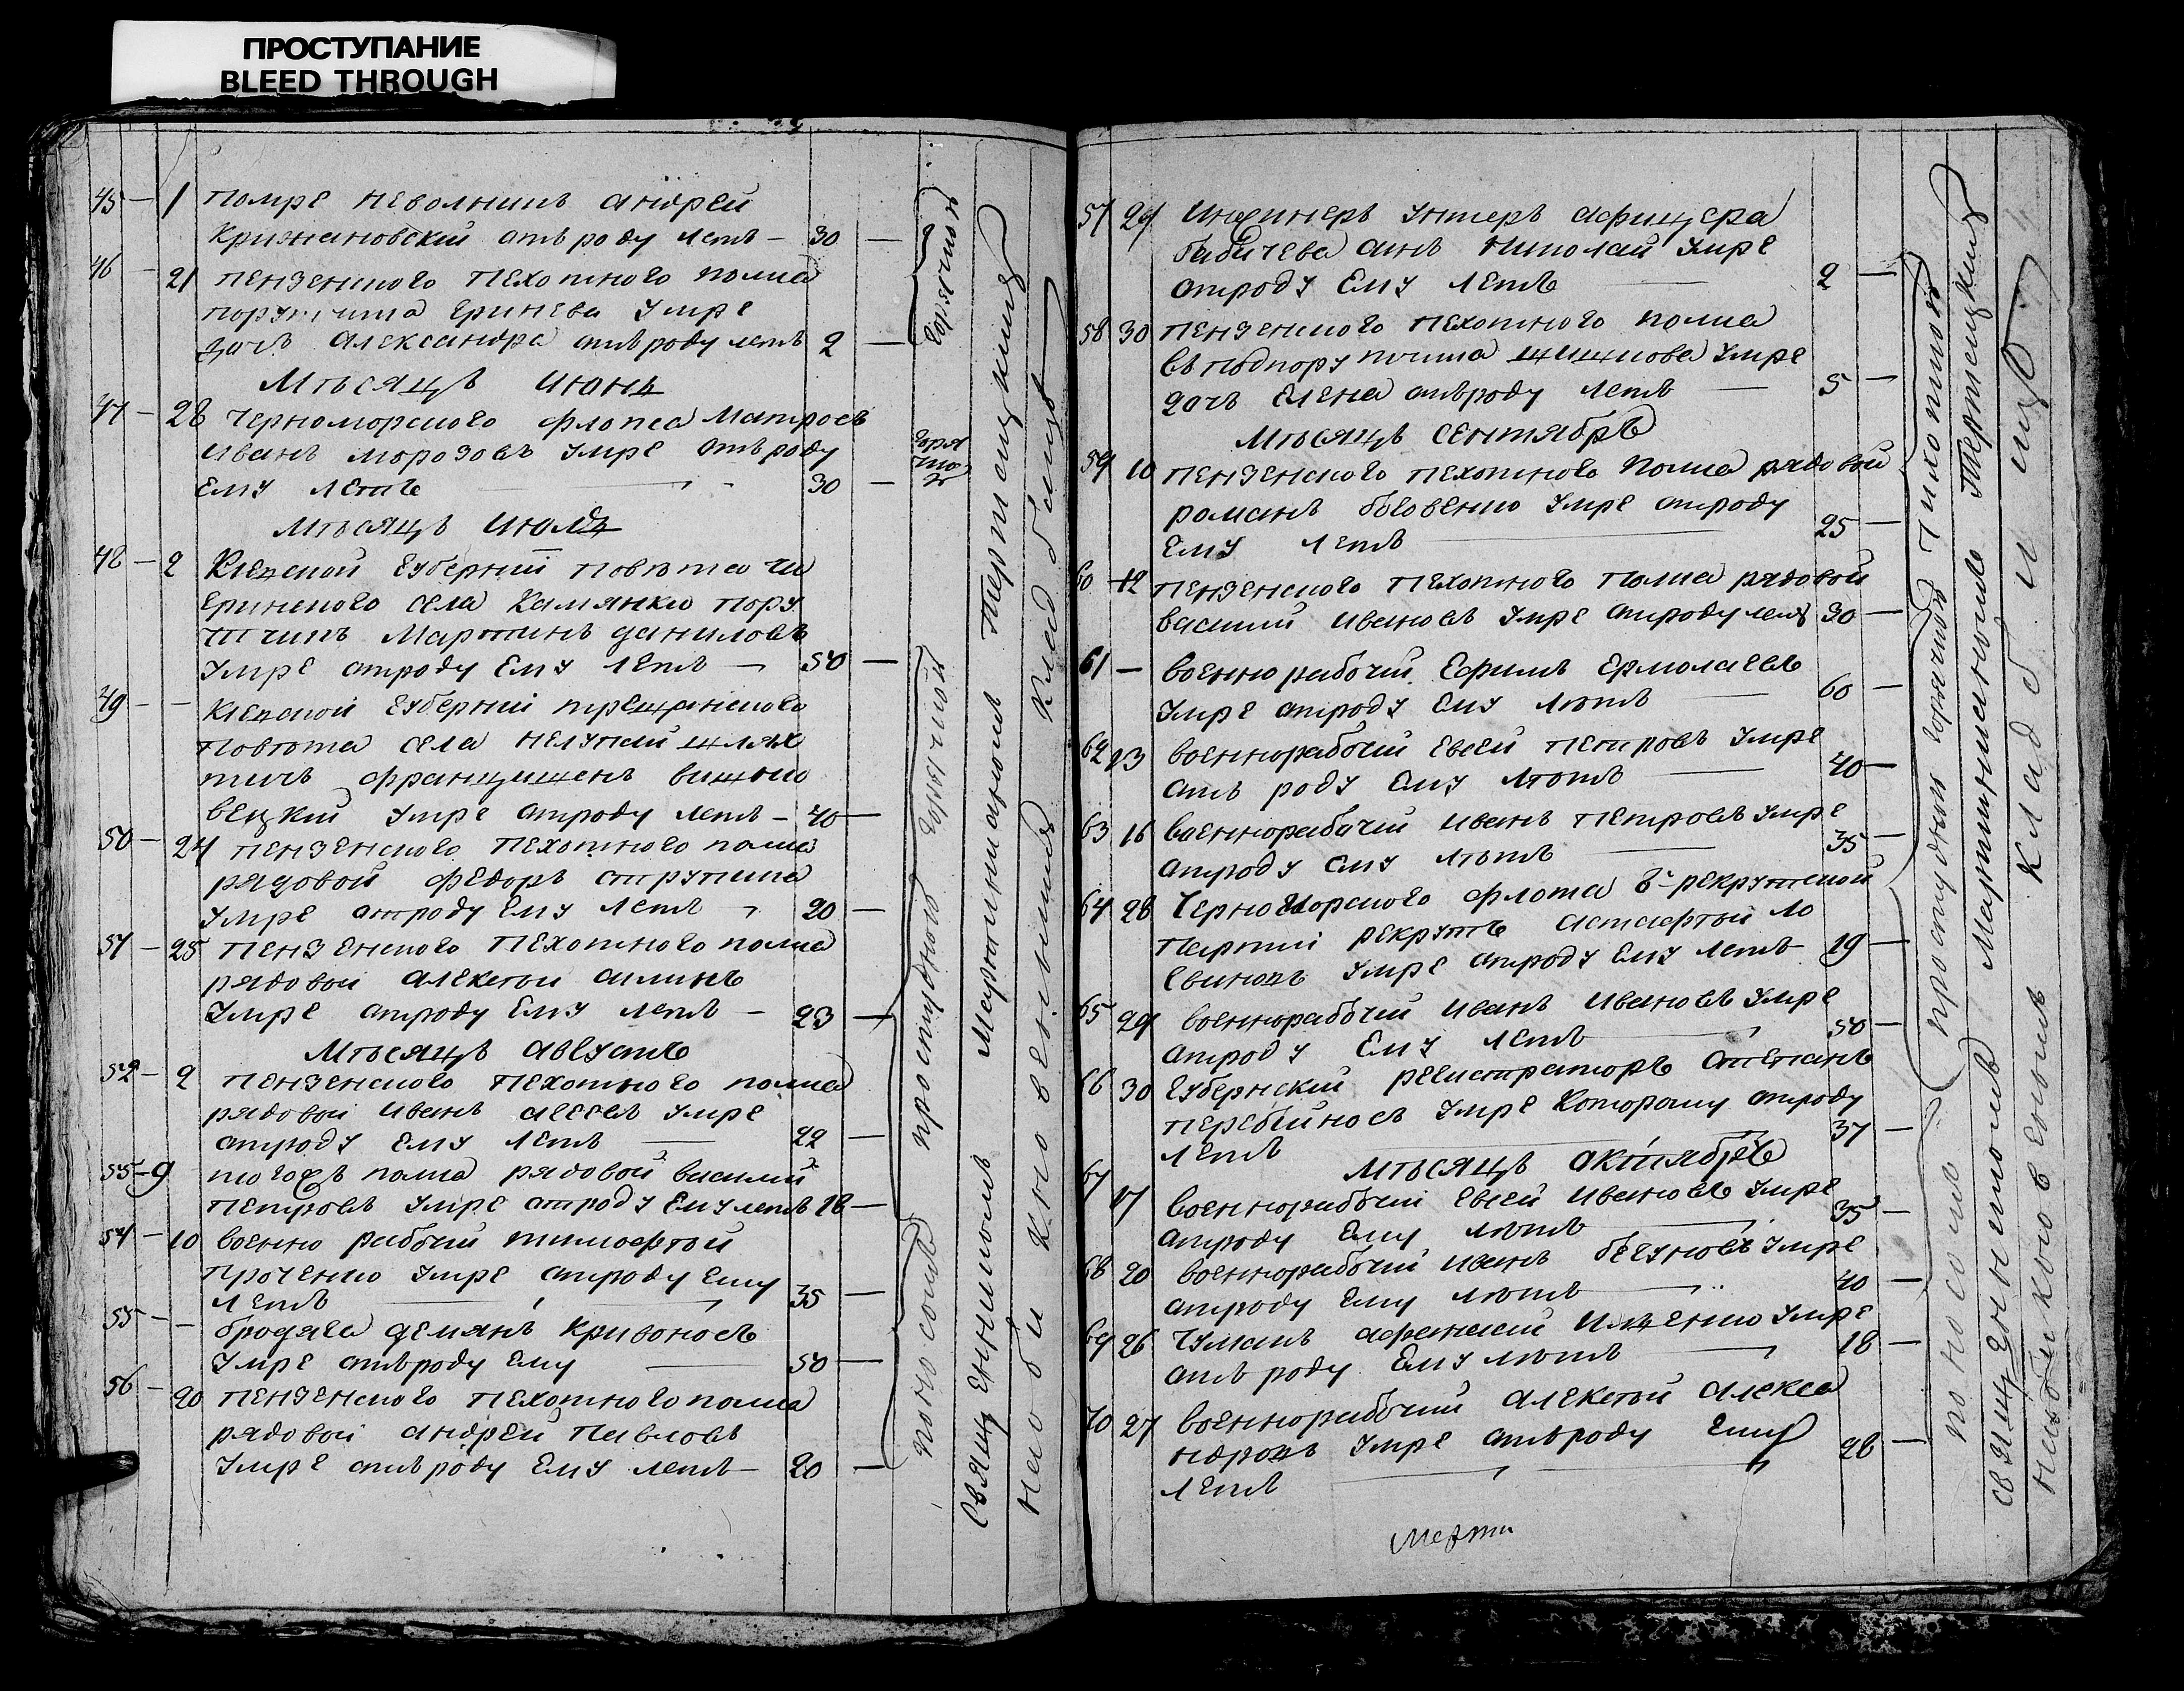 ПРОСТУПАНИЕ
BLEED THROUGH
45 — 1 помре неволникъ андрей
крижановский отъ роду летъ — 30 —
46 — 21 пензенскаго пехотнаго полка
порутчика умре
дочь александра отъ роду летъ 2 —
Мѣсяцъ июнь
47 — 28 черноморскаго флота матросъ
иванъ морозовъ умре отъ роду
ему летъ 30 —
Мѣсяцъ июль
48 — 2 Киевской губерний повѣта чи
гринскаго села камянки пору
тчикъ мартинъ даниловъ
умре отроду ему летъ — 50 —
49 — — киевской губерний
повѣта села шлях
тичъ францишекъ вишно
вецкий умре отроду летъ — 40 —
50 — 24 пензенскаго пехотнаго полка
рядовой федоръ
умре отроду ему летъ 20 —
51 — 25 пензенскаго пехотнаго полка
рядовой алексѣй силинъ
умре отроду ему летъ — 23 —
Мѣсяцъ августъ
52 — 2 пензенскаго пехотнаго полка
рядовой иванъ умре
отроду ему летъ — 22 —
53 — 9 тогожъ полка рядовой василий
петровъ умре отроду ему летъ 18 —
54 — 10 военно рабочий тимофѣй
проченко умре отроду ему
летъ 35 —
55 — — бродяга демянъ кривоносъ
умре отъроду ему 50 —
56 — 20 пензенскаго пехотнаго полка
рядовой андрей павловъ
умре отъ роду ему летъ — 20 —
горячкою
горя
чко
ю
поносомъ простудною горячкою
священникомъ Мартиниановъ Терлецкимъ
57 29 инженеръ унтеръ афицера
бабичева синъ николай умре
отроду ему летъ 2 —
58 30 пензенскаго пехотнаго полка
умре
дочь елена отъроду летъ — 5 —
Мѣсяцъ сентябрь
59 10 пензенскаго пехотнаго полка рядовой
романъ умре отроду
ему летъ 25 —
60 12 пензенскаго пехотнаго полка рядовой
василий ивановъ умре отроду летъ 30 —
61 — военно рабочий ефимъ ермолаевъ
умре отроду ему лѣтъ 60 —
62 13 военнорабочий евсей петровъ умре
отъ роду ему лѣтъ — 40 —
63 16 военнорабочий иванъ петровъ умре
отроду ему лѣтъ 35 —
64 28 Черноморскаго флота рекрутской
партий рекрутъ астафѣй ло
гвиновъ умре отроду ему летъ 19 —
65 29 военнорабочий иванъ ивановъ умре
отроду ему летъ 50 —
66 30 губернский регистраторъ степанъ
перебийносъ умре которому отроду
летъ 37 —
мѣсяцъ октиябрь
67 17 военнорабочий евсей ивановъ умре
отроду ему лѣтъ 35 —
68 20 военнорабочий иванъ бегуновъ умре
отроду ему лѣтъ 40 —
69 26 чумакъ умре
отъ роду ему лѣтъ 18 —
70 27 военнорабочий алексѣй алекса
ндровъ умре отъроду ему
летъ 28 —
поносомъ простудною горячкою
священникомъ Мартиниановъ Терлецкимъ